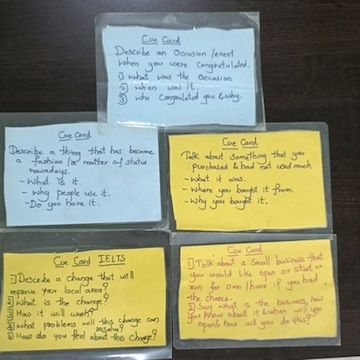 Cue Card
Describe an Occasion/event
when you were Congratulated.
1) What was the Occasion.
2) When was it.
3) Who Congratulated you & why.
Cue Card
Describe a thing that has become
a fashion or matter of status
nowadays.
- What is it.
- Why people use it.
- Do you have it.
Cue Card
Talk about something that you
purchased & had not used much.
- What it was.
- Where you bought it from.
- Why you bought it.
Cue Card IELTS
1) Describe a change that will
improve your local area?
What is the change?
How it will work?
What problems will this change can
resolve?
How do you feel about this change?
Cue Card
1) Talk about a Small business that
you would like open or start or
run for own/have if you had
the chance.
2) Say what is the business, how
you know about it & when will you
open & how will you do this?